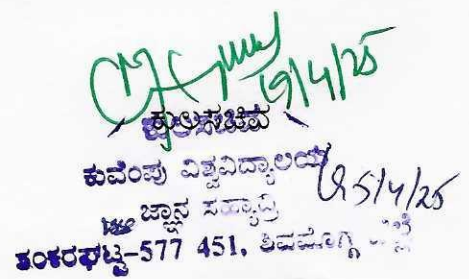 19/4/25
ಕುಲಸಚಿವ
ಕುವೆಂಪು ವಿಶ್ವವಿದ್ಯಾಲಯ
15/4/25
ಜ್ಞಾನ ಸಹ್ಯಾದ್ರಿ
ಶಂಕರಘಟ್ಟ-577 451, ಶಿವಮೊಗ್ಗ